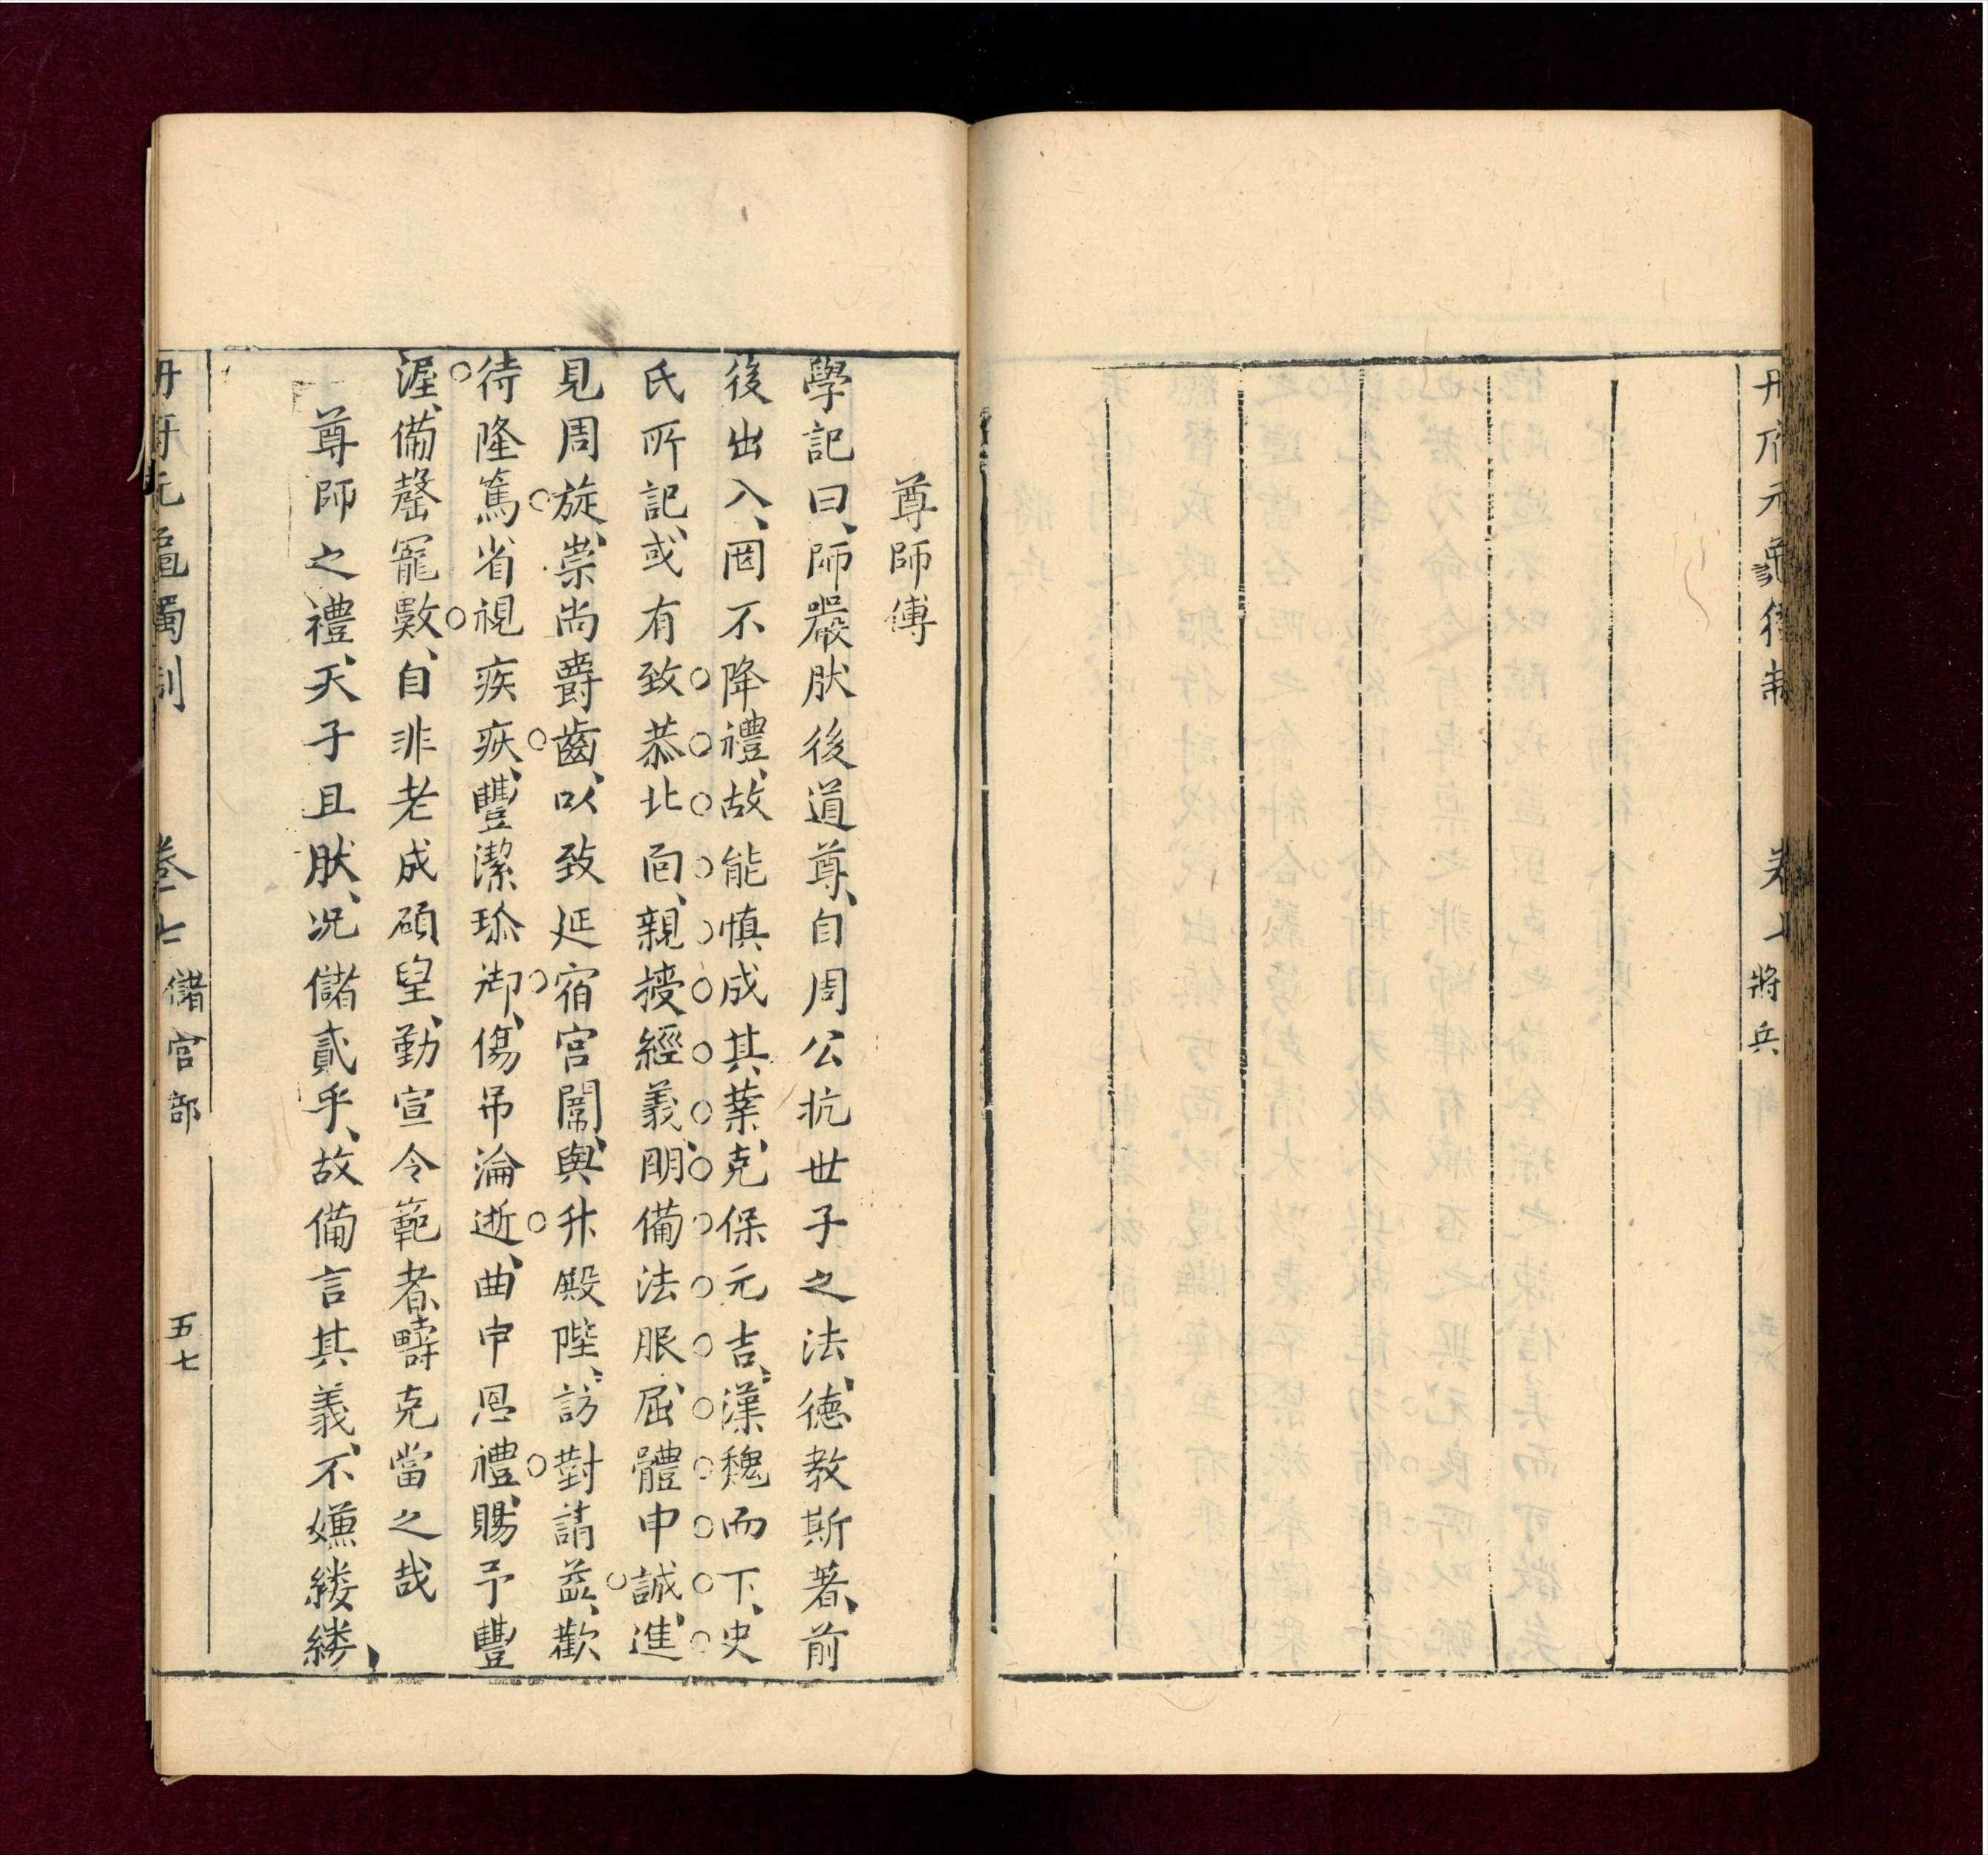 卷七 將兵
尊師傅
學記曰、師嚴肰後道尊、自周公抗世子之法、德教斯著、前
後出入、罔不降禮、故能慎成其業、克保元吉、漢魏而下、史
氏所記、或有致恭北面、親授經義、明備法服、屈體申誠、進
見周旋、崇尚爵齒、以致延宿宮闈、輿升殿陛、訪對請益、歡
待隆篤、省視疾疢、豐潔珎御、傷吊淪逝、曲申恩禮、賜予豐
渥、備罄寵數、自非老成碩望、勤宣令範者、疇克當之哉
尊師之禮、天子且肰、况儲貳乎、故備言其義、不嫌縷縷、
冊府元龜獨制 卷七 儲宮部 五七